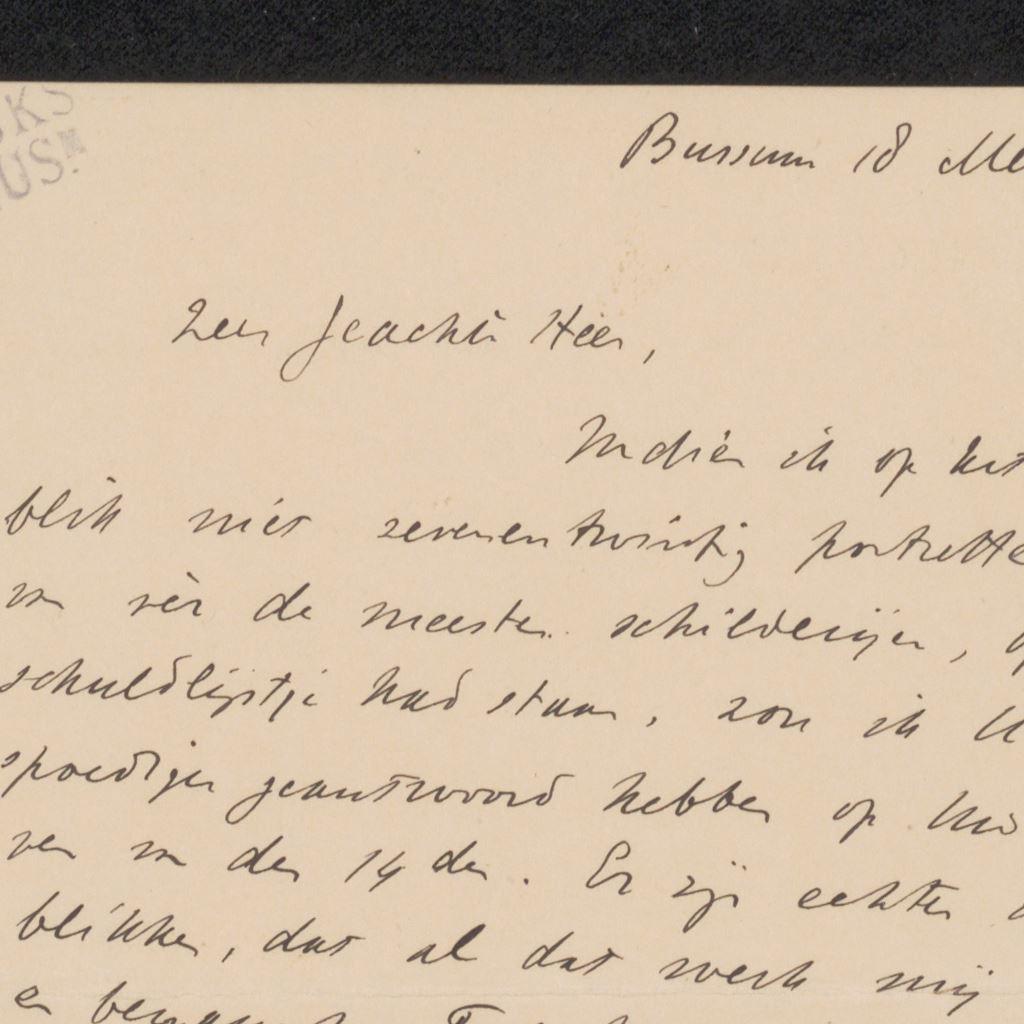 KS
US.
Bussum 18 Me
Zeer geachte Heer,
Indien ik op het
blik niet zevenentwintig portrette
van vèr de meeste schilderijen, o
schuldlijstje had staan, zou ik U
spoediger geantwoord hebben op Uw
ven van den 14 den. Er zijn echter
blikken, dat al dat werk mij
en